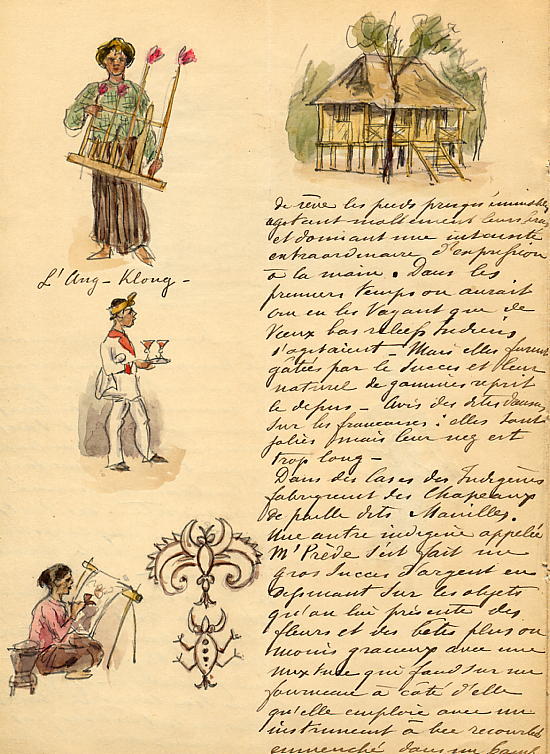 L'Ang-Klong-
de rêve les pieds presqu'immobiles
agitant mollement leurs bras
et donnant une intensité
extraordinaire d'expression
à la main. Dans les
premiers temps on aurait
cru en les voyant que de
Vieux bas reliefs Indiens
s'agitaient - Mais elles furent
gâtées par le succès et leur
naturel de gamines reprit
le dessus - Avis des dites danseuses
sur les françaises : elles sont
jolies mais leur nez est
trop long -
Dans des Cases des Indigènes
fabriquent des Chapeaux
de paille dits Manilles.
Une autre indigène appelée
Mr Prède s'est fait un
gros succès d'argent en
dessinant sur les objets
qu'on lui présente des
fleurs et des bêtes plus ou
moins gracieux avec une
mixture qui fond sur un
fourneau à côté d'elle
qu'elle emploie avec un
instrument à bec recourbé
emmenché dans un